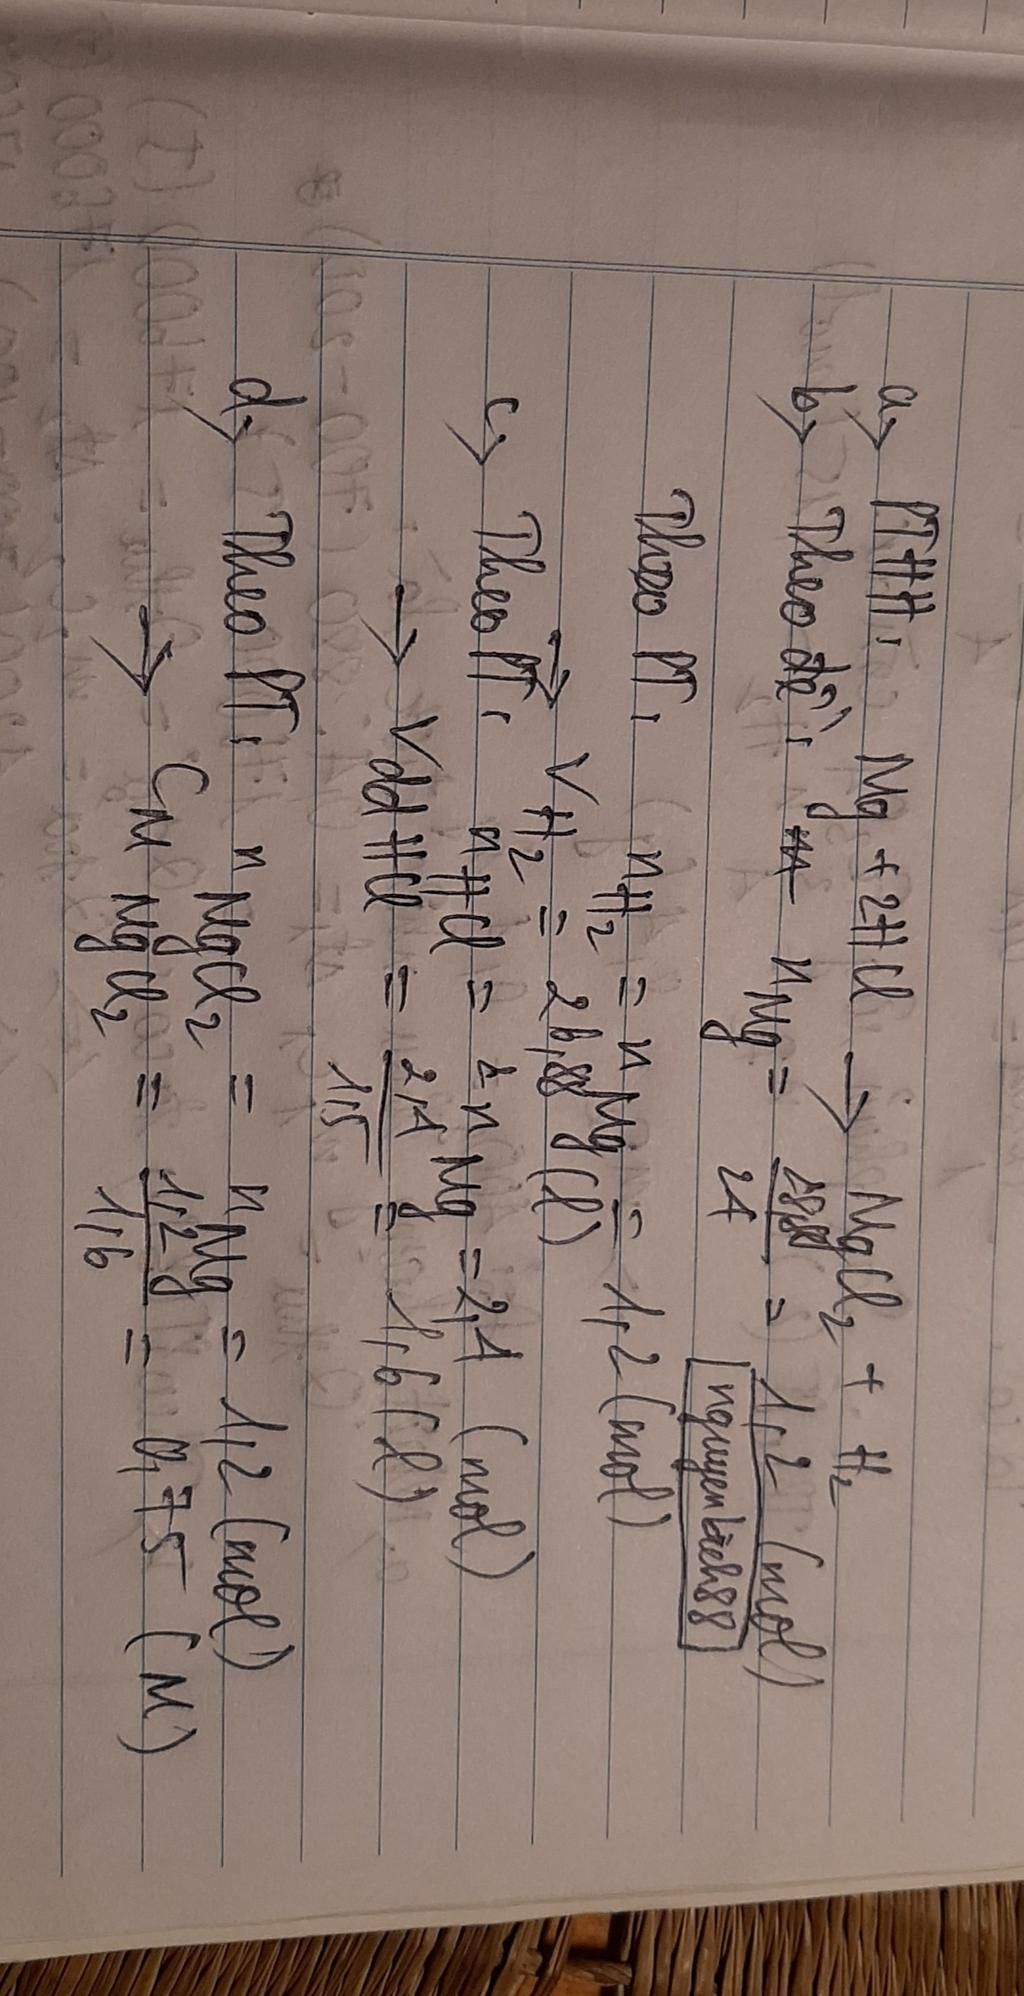 a, PTHH, Mg + 2HCl → MgCl2 + H2
b, → Theo đề, nMg = 28,8/24 = 1,2 (mol)
nguyenbach88
Theo PT, nH2 = nMg = 1,2 (mol)
→ VH2 = 26,88 (l)
c, → Theo PT, nHCl = 2nMg = 2,4 (mol)
→ Vdd HCl = 2,4/1,5 = 1,6 (l)
d, → Theo PT, nMgCl2 = nMg = 1,2 (mol)
→ CM MgCl2 = 1,2/1,6 = 0,75 (M)